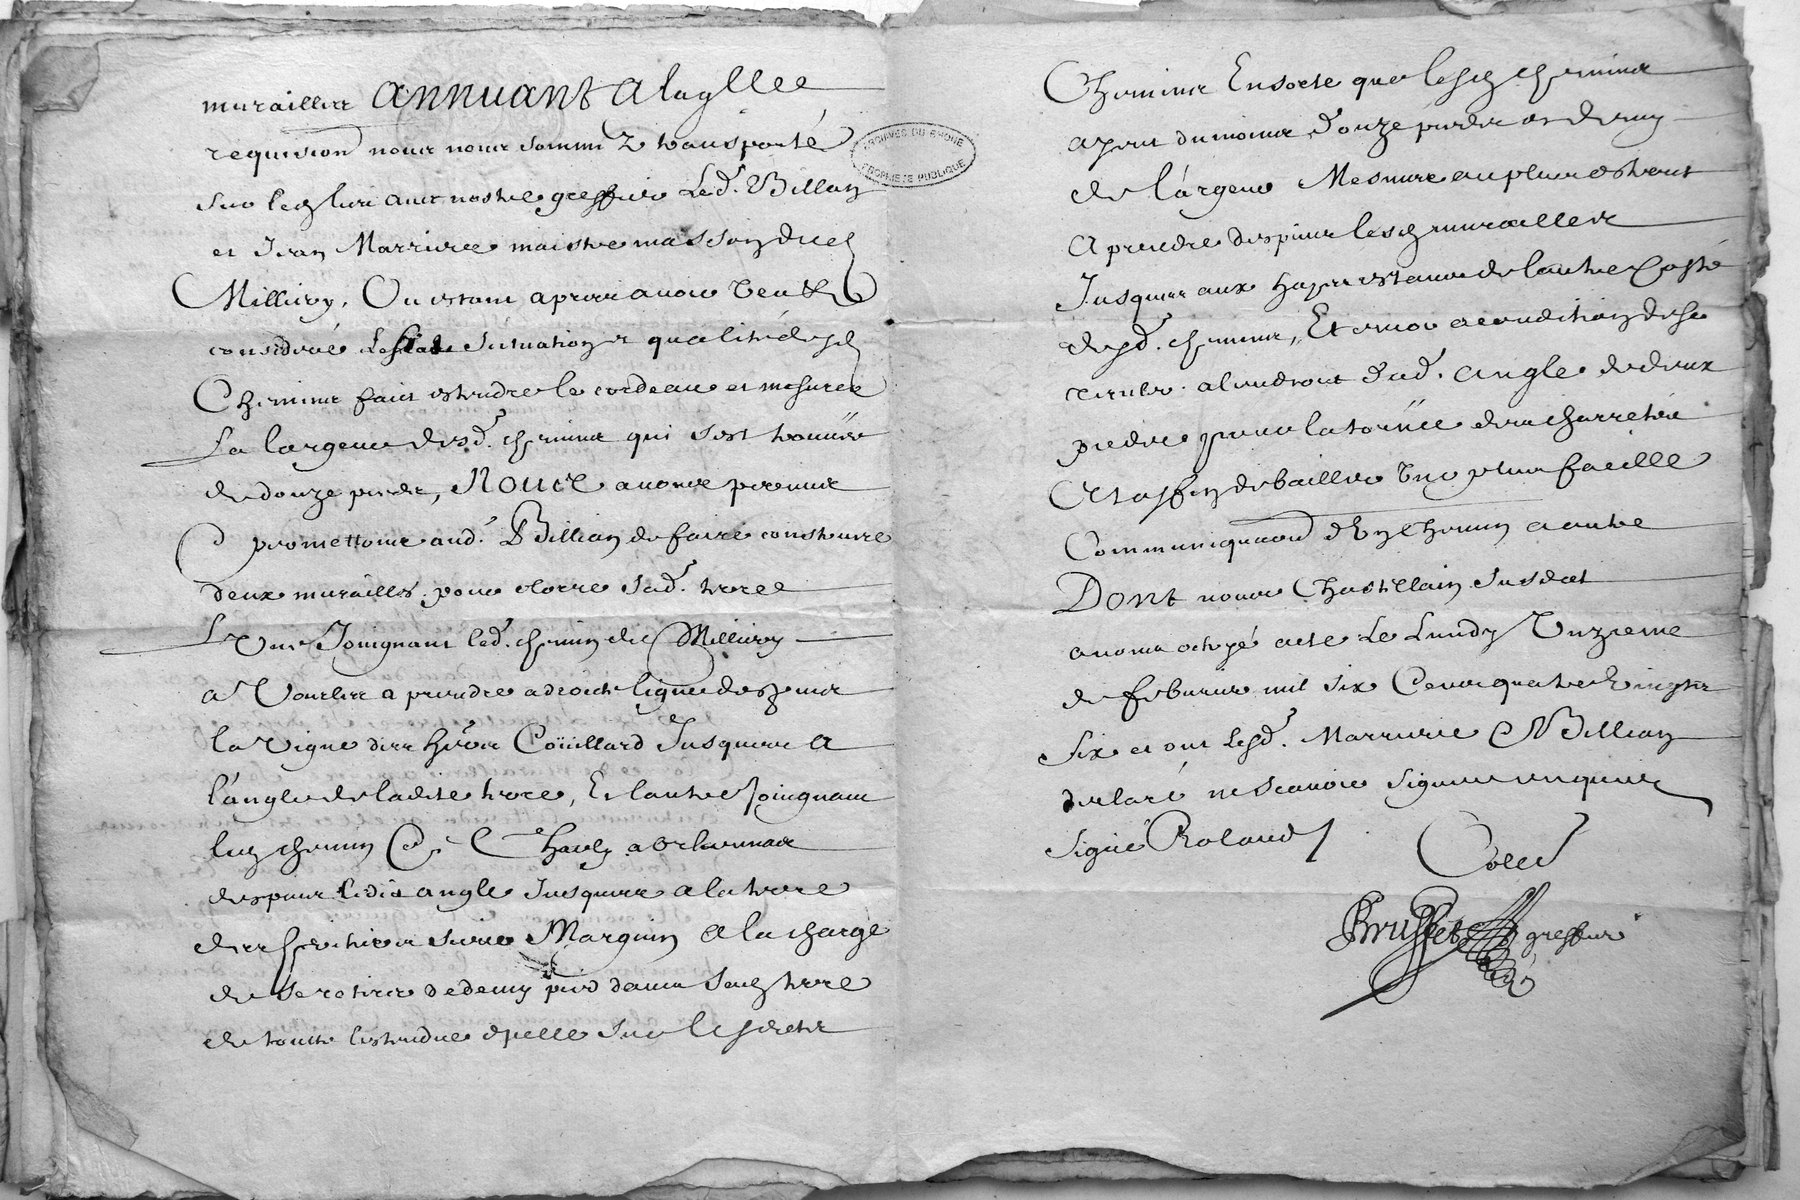 murailles Annuant A laqlle
requision nous nous sommez transporté
sur led lieu avec nostre greffier Led. Billan
et Jean Marriere maistre masson dud
Millery, Ou estant apres avoir veu &
consideré Situation et qualité desd
Chemins fait estendre le cordeau et mesurer
La largeur desd. chemins qui sest trouvée
de douze pieds, Nous avons permis
& promettons aud. Billian de faire construire
deux murailles pour clorre sad. terre
L'Une Joignant led. chemin de Millery
a Vourles a prendre a droite ligne despuis
la vigne des heoirs Coüillard Jusques A
l'angle de ladite terre, Et l'autre Joingnant
led chemin de Charly a
despuis ledit angle Jusques a la terre
des heritiers sieur Marquin A la charge
de se retirer de demy pied dans sad terre
de toutte l'estendue dycelle sur lesdits
Chemins Ensorte que lesd chemins
ayent du moins douze pieds et demy
de largeur Mesure au plus estroit
A prendre despuis lesd murailles
Jusques aux hayes estant de l'autre Costé
desd. chemins, Et encor a condition de se
retirer a l'endroit dud. angle de deux
pieds pour la tornée des charrettes
Et affin de bailler Une plus facille
Communiquaon d'Un chemin a autre
Dont nous Chastellain susdit
avons octroyé acte Le Lundy Unzieme
de febvrier mil six Cent quatre Vingts
Six et ont Lesd. Marriere & Billian
declaré ne scavoir signer enquis
Signé Roland
Colld
Brusset greffier
ARCHIVES DU RHONE
PROPRIETE PUBLIQUE